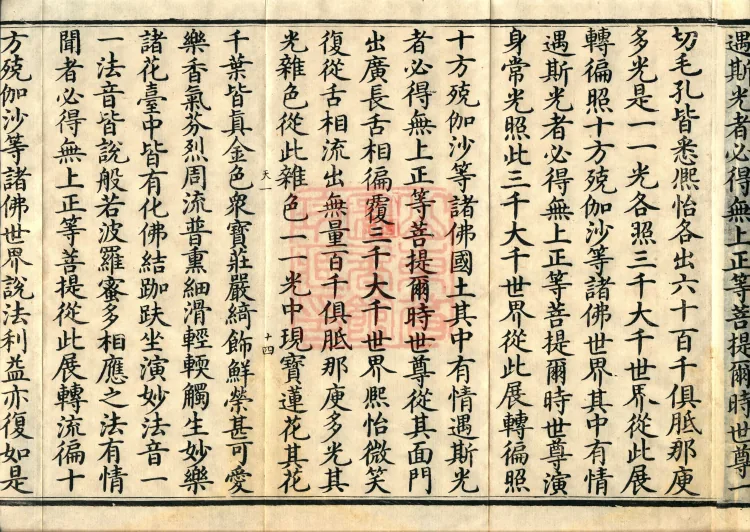 遇斯光者必得無上正等菩提爾時世尊一
切毛孔皆悉熈怡各出六十百千俱胝那庾
多光是一一光各照三千大千世界從此展
轉徧照十方殑伽沙等諸佛世界其中有情
遇斯光者必得無上正等菩提爾時世尊演
身常光照此三千大千世界從此展轉徧照
十方殑伽沙等諸佛國土其中有情遇斯光
者必得無上正等菩提爾時世尊從其面門
出廣長舌相徧覆三千大千世界熈怡微笑
復從舌相流出無量百千俱胝那庾多光其
光雜色從此雜色一一光中現寶蓮花其花
天一 十四
千葉皆真金色衆寶莊嚴綺飾鮮榮甚可愛
樂香氣芬烈周流普熏細滑輕輭觸生妙樂
諸花臺中皆有化佛結跏趺坐演妙法音一
一法音皆說般若波羅蜜多相應之法有情
聞者必得無上正等菩提從此展轉流徧十
方殑伽沙等諸佛世界說法利益亦復如是